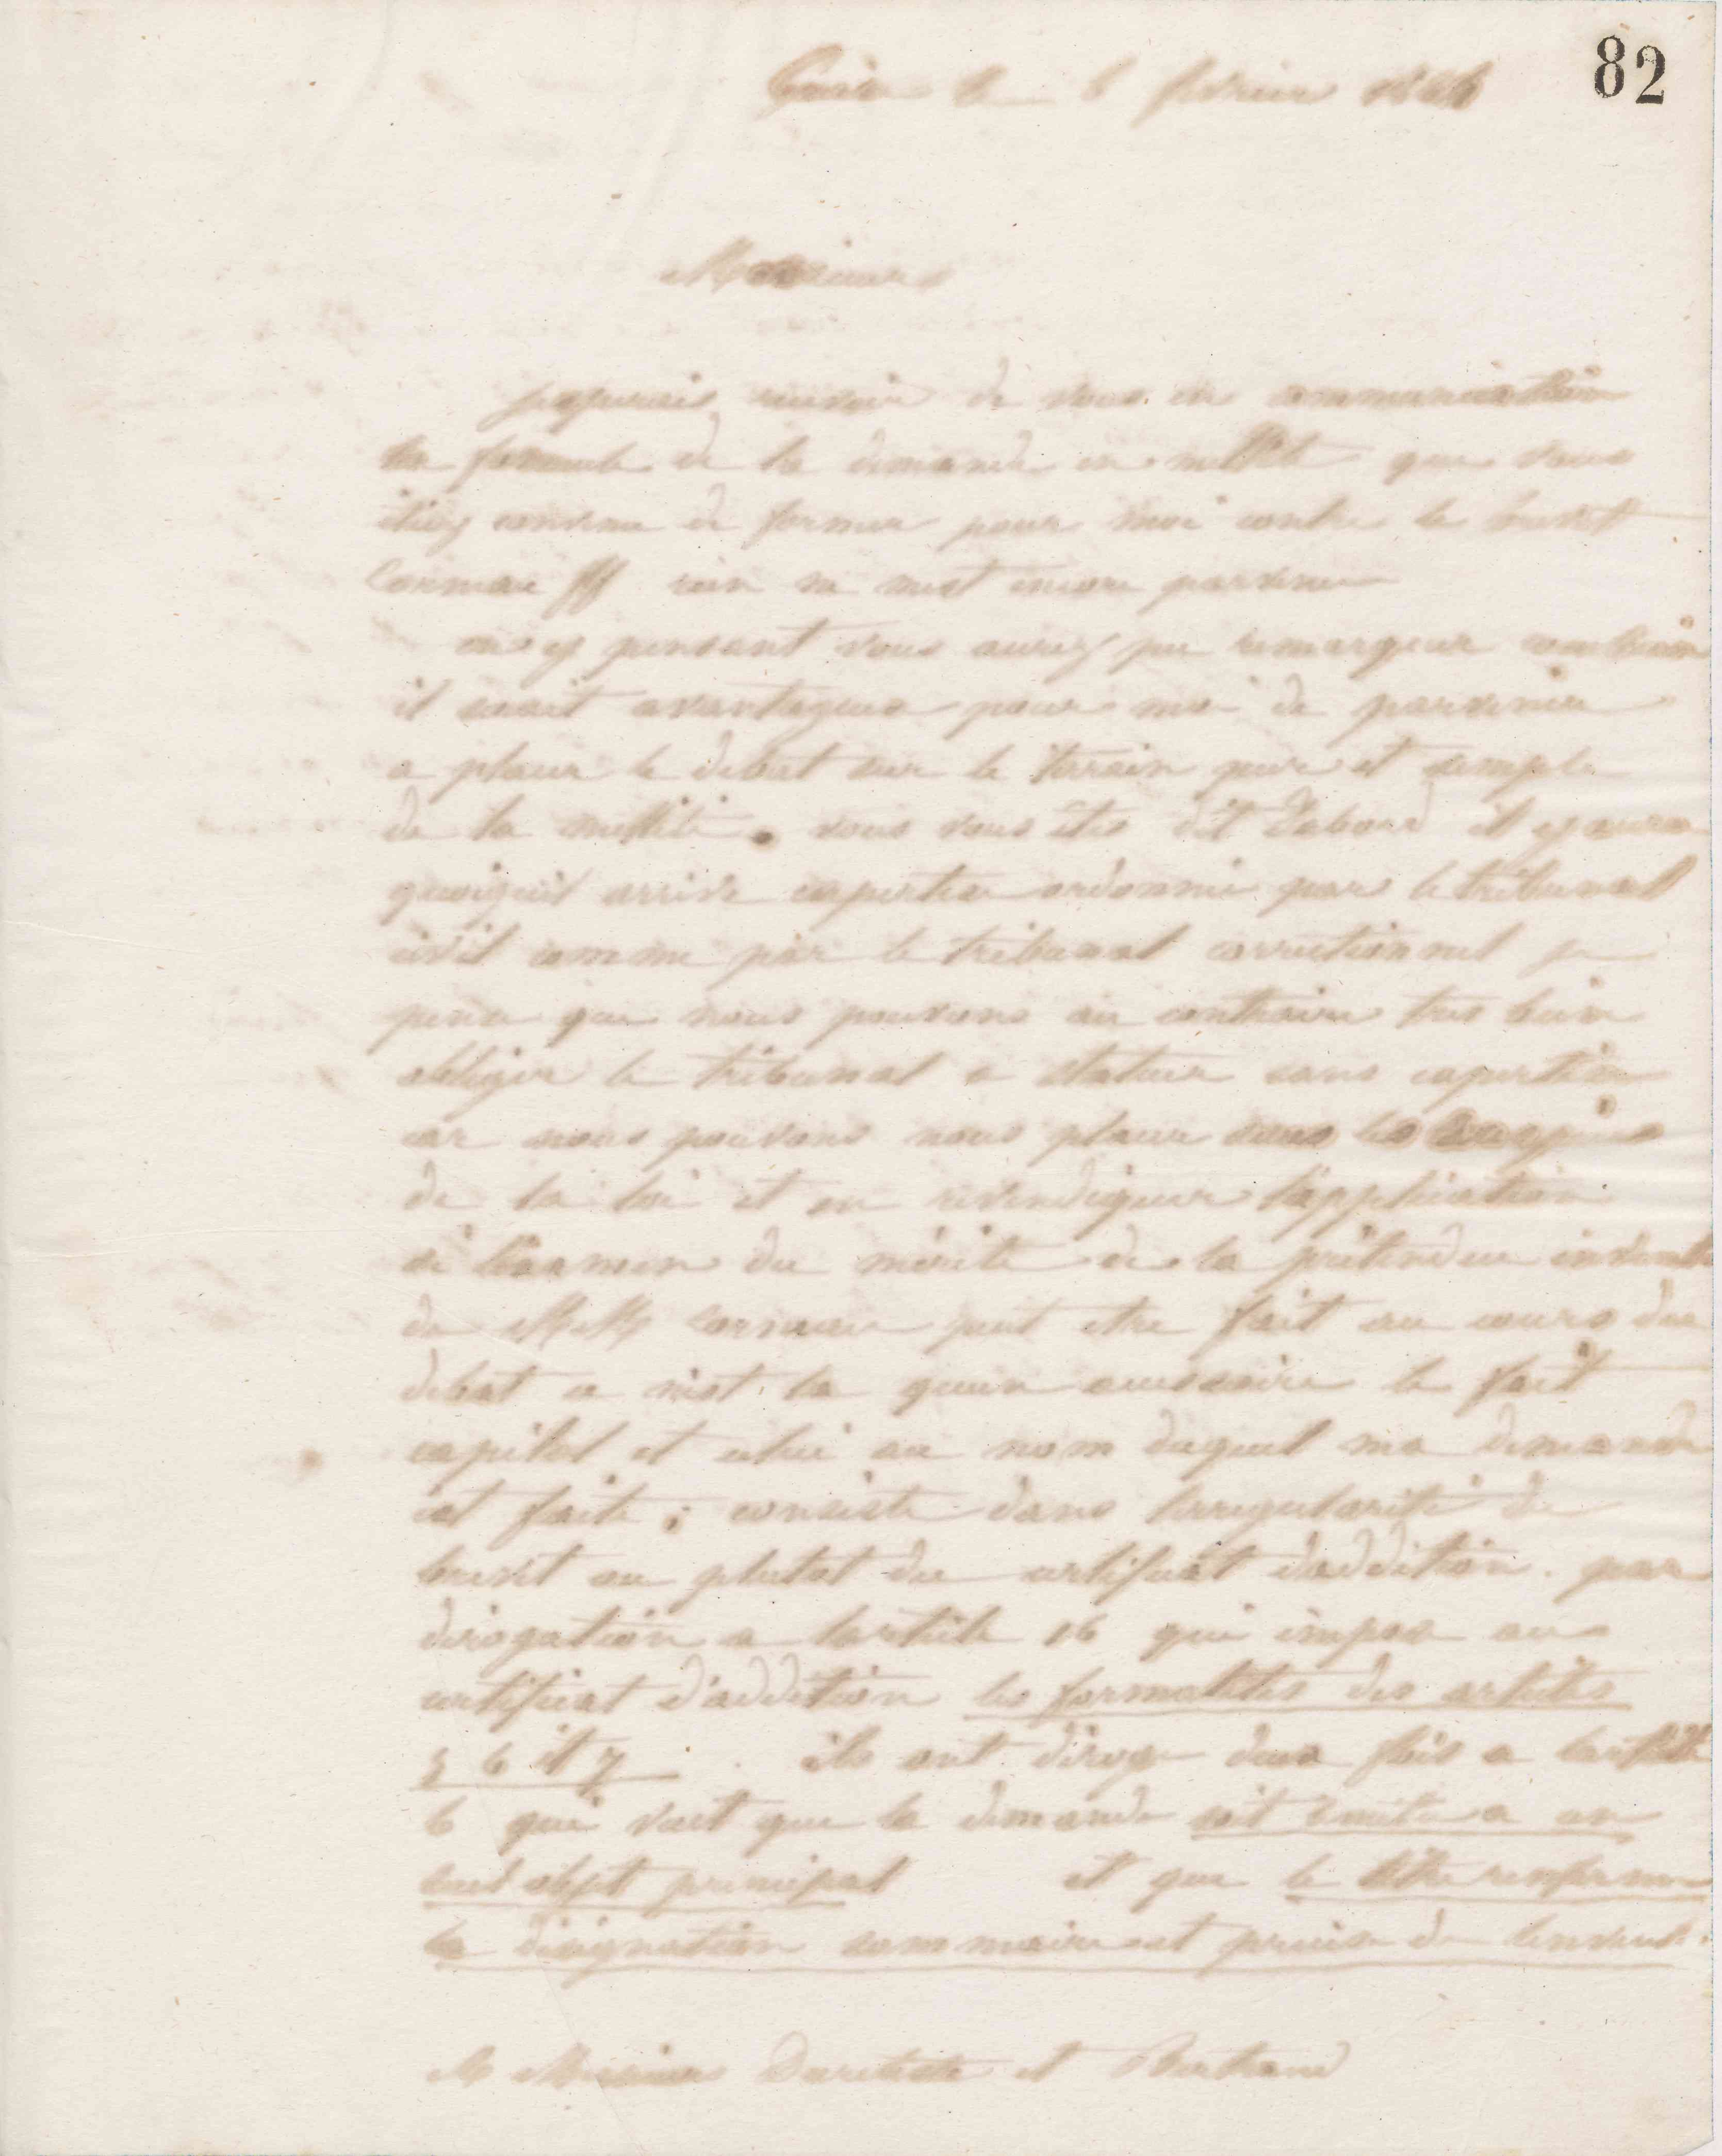 82
Guise le 6 février 1866
Messieurs
j'esperais recevoir de vous en communication
la formule de la demande en nullité que vous
étiez convenu de former pour moi contre le brevet
Corneau ff rien ne mest encore parvenu
en y pensant vous aurez pu remarquer combien
il serait avantageux pour moi de parvenir
a placer le debat sur le terrain pur et simple
de la nullité. vous vous êtes dit dabord il y aura
quoiquil arrive expertise ordonnée par le tribunal
civil comme par le tribunal correctionnel je
pense que nous pouvons au contraire tres bien
obliger le tribunal a statuer sans expertise
car nous pouvons nous placer sous les
de la loi et en revendiquer l'application
si lexamen du mérite de la prétendue invention
de MM Corneau peut etre fait au cours du
debat ce nest la quun accessoire le fait
capital et celui au nom duquel ma demande
est faite ; consiste dans lirregularité du
brevet ou plutot du certificat daddition. par
dérogation a larticle 16 qui impose aux
certificat d'addition les formalités des articles
5 6 et 7 . ils ont dérogé deux fois a larticle
6 qui veut que la demande soit limitée a un
seul objet principal et que le titre renferme
la désignation sommaire et précise de linvent.
A Messieurs Dureteste et Bertrand